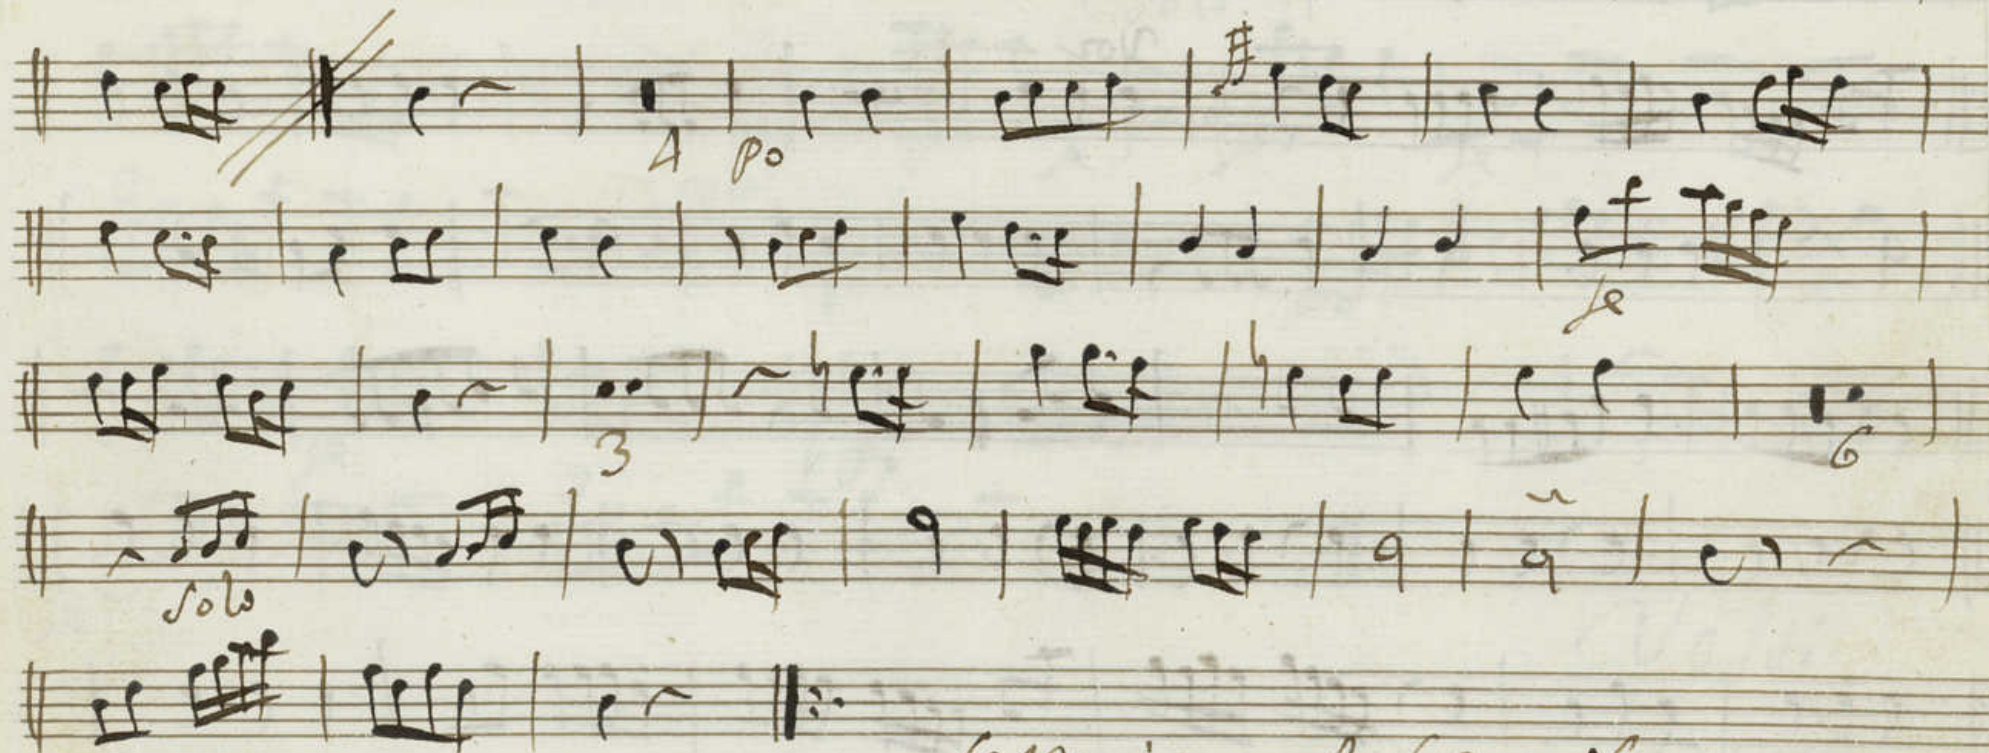 4 po
fe
3 6
Solo